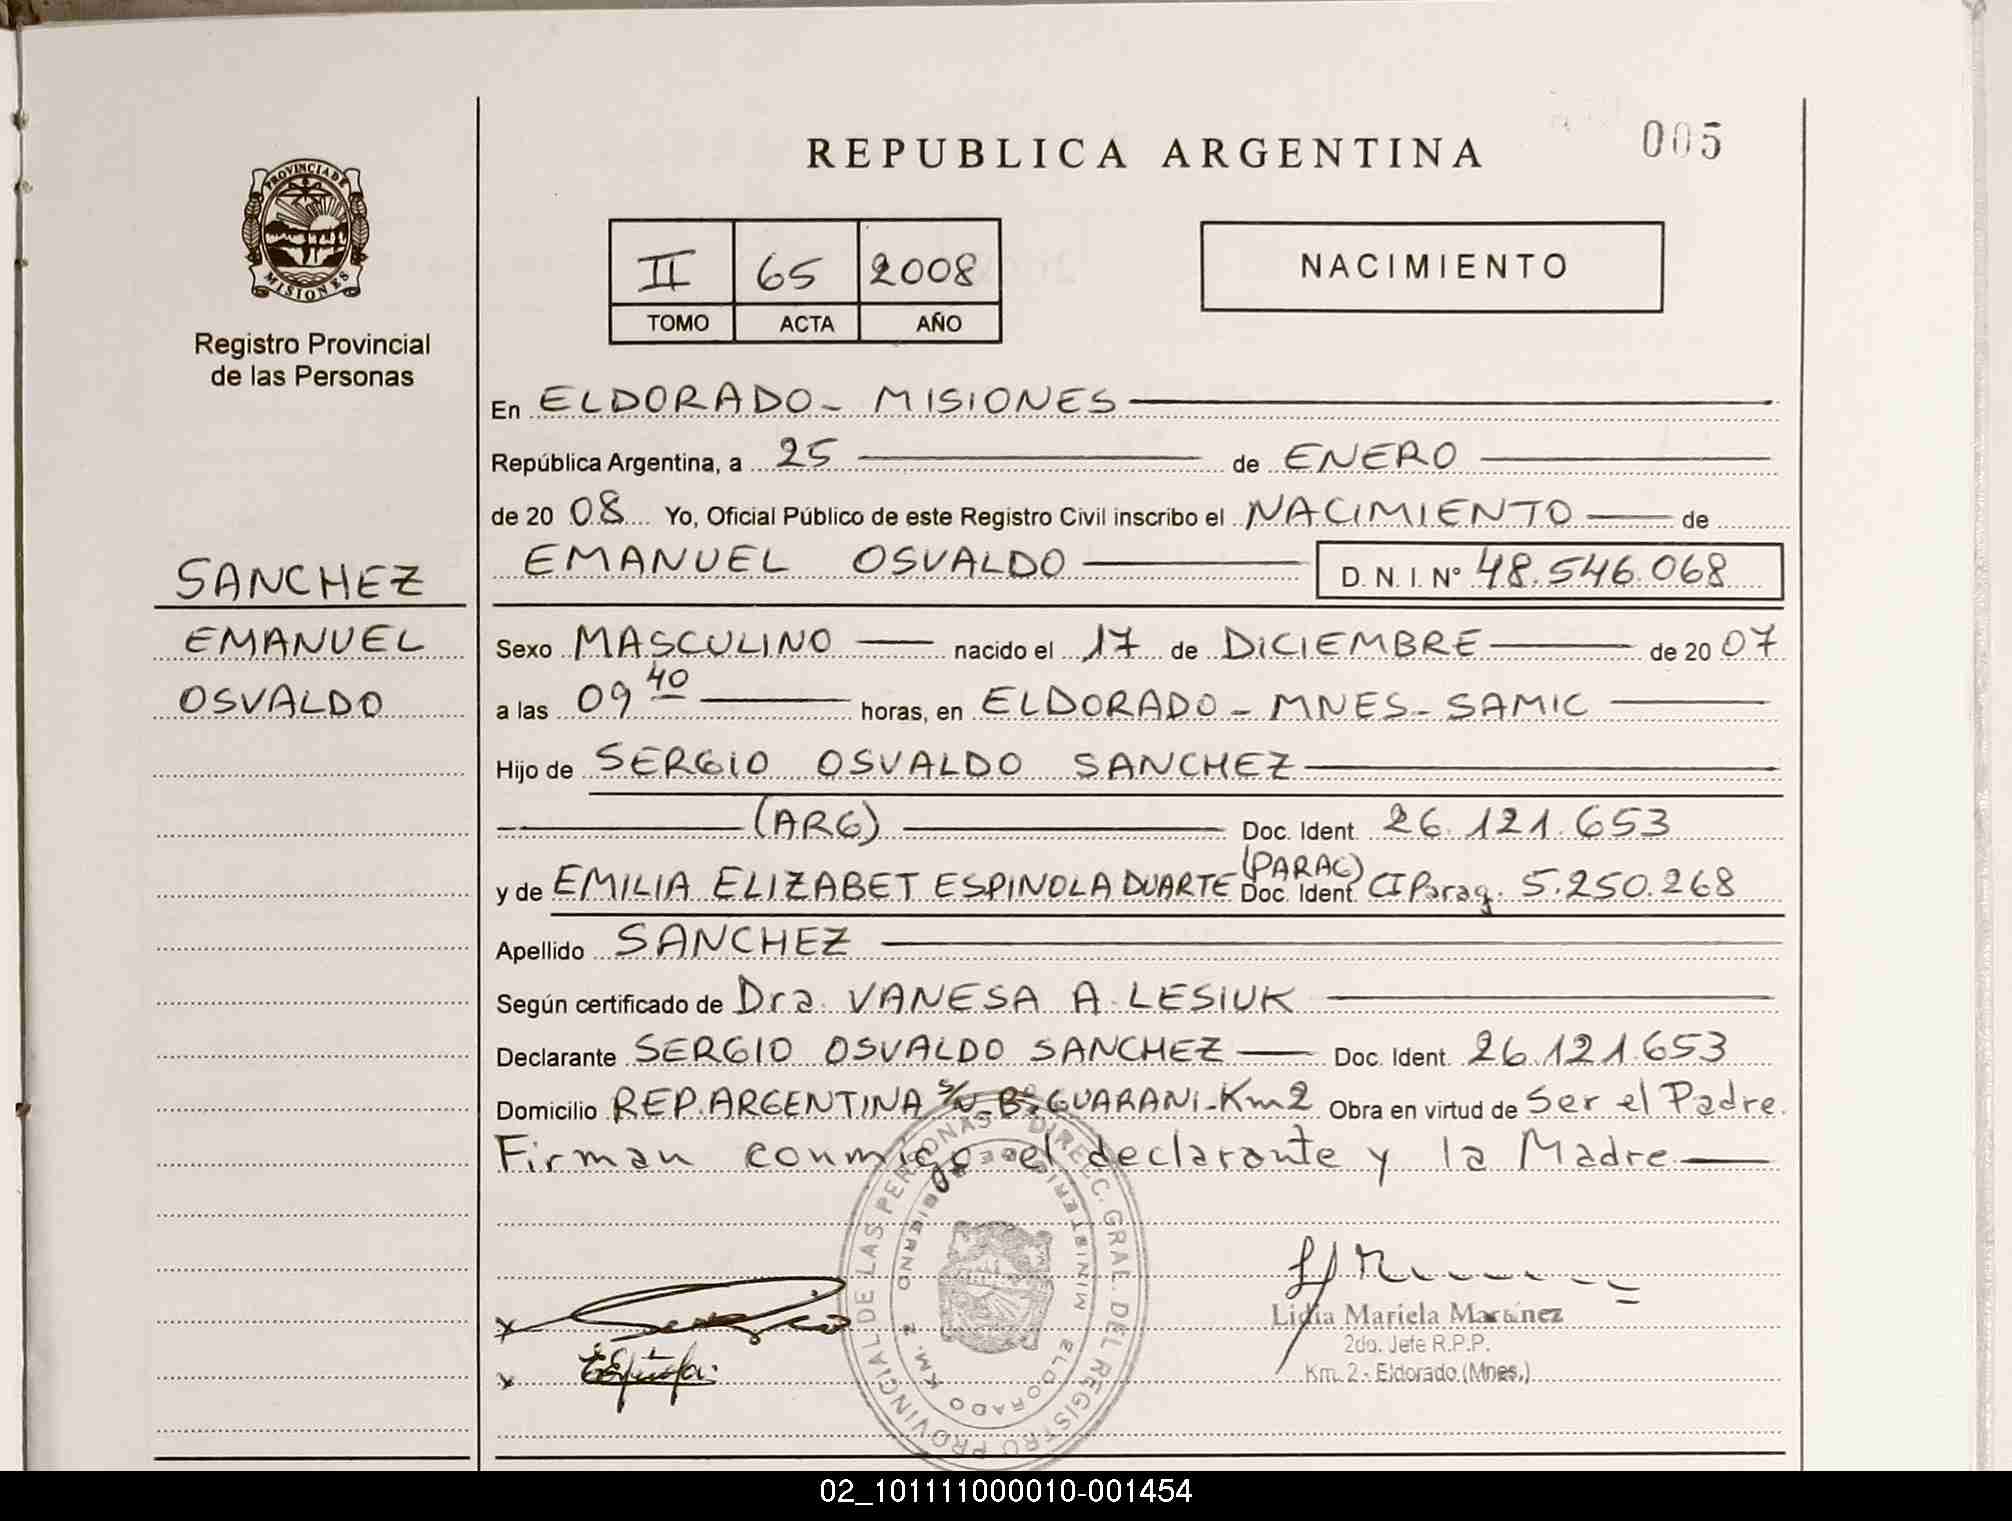 REPUBLICA ARGENTINA
005
PROVINCIA DE
MISIONES
Registro Provincial
de las Personas
II 65 2008
TOMO ACTA AÑO
NACIMIENTO
En ELDORADO - MISIONES
República Argentina, a 25 de ENERO
de 20 08 Yo, Oficial Público de este Registro Civil inscribo el NACIMIENTO de
EMANUEL OSVALDO D. N. I. N° 48.546.068
SANCHEZ
EMANUEL
OSVALDO
Sexo MASCULINO nacido el 17 de DICIEMBRE de 20 07
a las 09 40 horas, en ELDORADO - MNES - SAMIC
Hijo de SERGIO OSVALDO SANCHEZ
(ARG) Doc. Ident. 26.121.653
y de EMILIA ELIZABET ESPINOLA DUARTE (PARAG) Doc. Ident. CI Parag. 5.250.268
Apellido SANCHEZ
Según certificado de Dra. VANESA A. LESIUK
Declarante SERGIO OSVALDO SANCHEZ Doc. Ident. 26.121.653
Domicilio REP. ARGENTINA S/N - Bº GUARANI - Km 2 Obra en virtud de Ser el Padre.
Firman conmigo el declarante y la Madre
DIREC. GRAL. DEL REGISTRO PROVINCIAL DE LAS PERSONAS
MINISTERIO DE GOBIERNO
ELDORADO KM. 2
x Sergio
x EEspínola.
Lidia Mariela Martinez
2do. Jefe R.P.P.
Km. 2 - Eldorado (Mnes.)
02_101111000010-001454